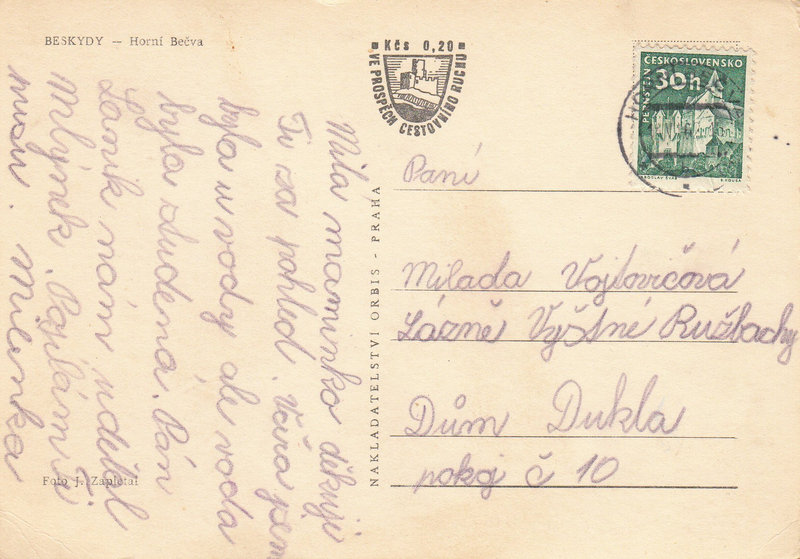 BESKYDY — Horní Bečva
Kčs 0,20
VE PROSPĚCH CESTOVNÍHO RUCHU
ČESKOSLOVENSKO
30h
PERNŠTEJN
Milá maminko děkuji
Ti za pohled. Včera jsem
byla u vody ale voda
byla studená. Pán
nám udělal
mlýnek. Posílám ti
Milenka
NAKLADATELSTVÍ ORBIS - PRAHA
Paní
Milada Vojtovičová
Lázně Vyštné Ružbachy
Dům Dukla
pokoj č 10
Foto J. Zapletal